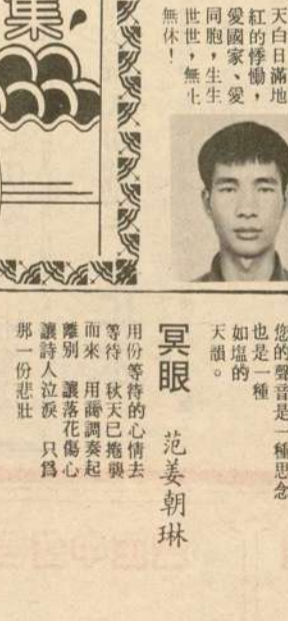 天白日滿地
紅的悸慟，
愛國家、愛
同胞，生生
世世，無止
無休！
集
您的聲音是一種思念
也是一種
如塩的
天韻。
冥眼 范姜朝琳
用份等待的心情去
等待 秋天已捲襲
而來 用調奏起
離別 讓落花傷心
讓詩人泣淚 只為
那一份悲壯